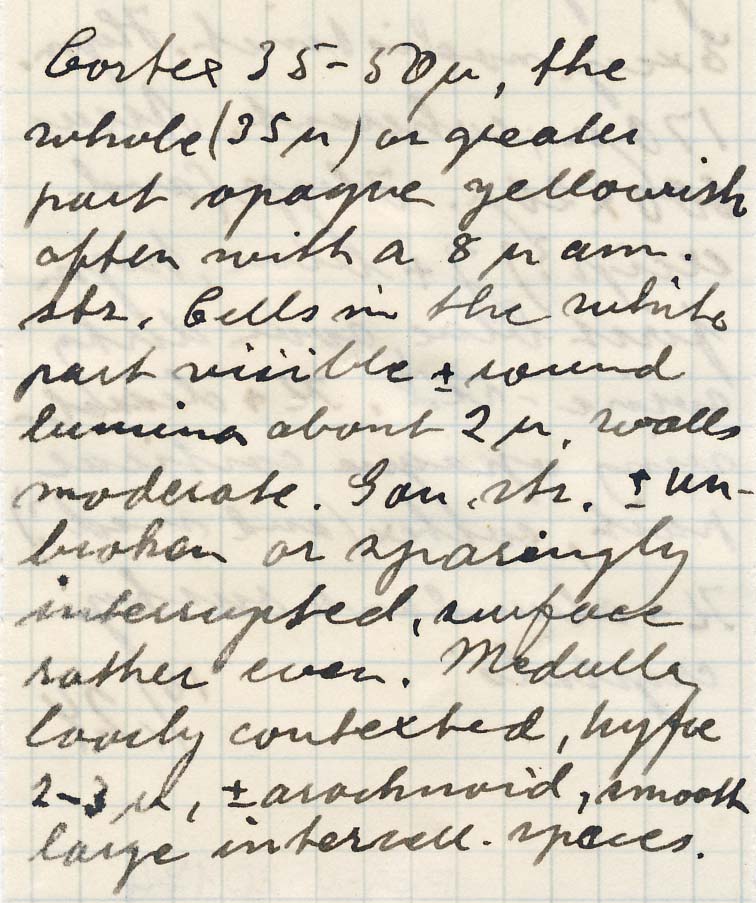 Cortex 35-50µ, the
whole (35µ) or greater
part opaque yellowish
often with a 8 µ am.
str. Cells in the white
part visible ± round
lumina about 2 µ, walls
moderate. Gon. str. ± un-
broken or sparingly
interrupted, surface
rather even. Medulla
loosly contexted, hyfae
2-3 µ, ± arachnoid, smooth
large intercell. spaces.